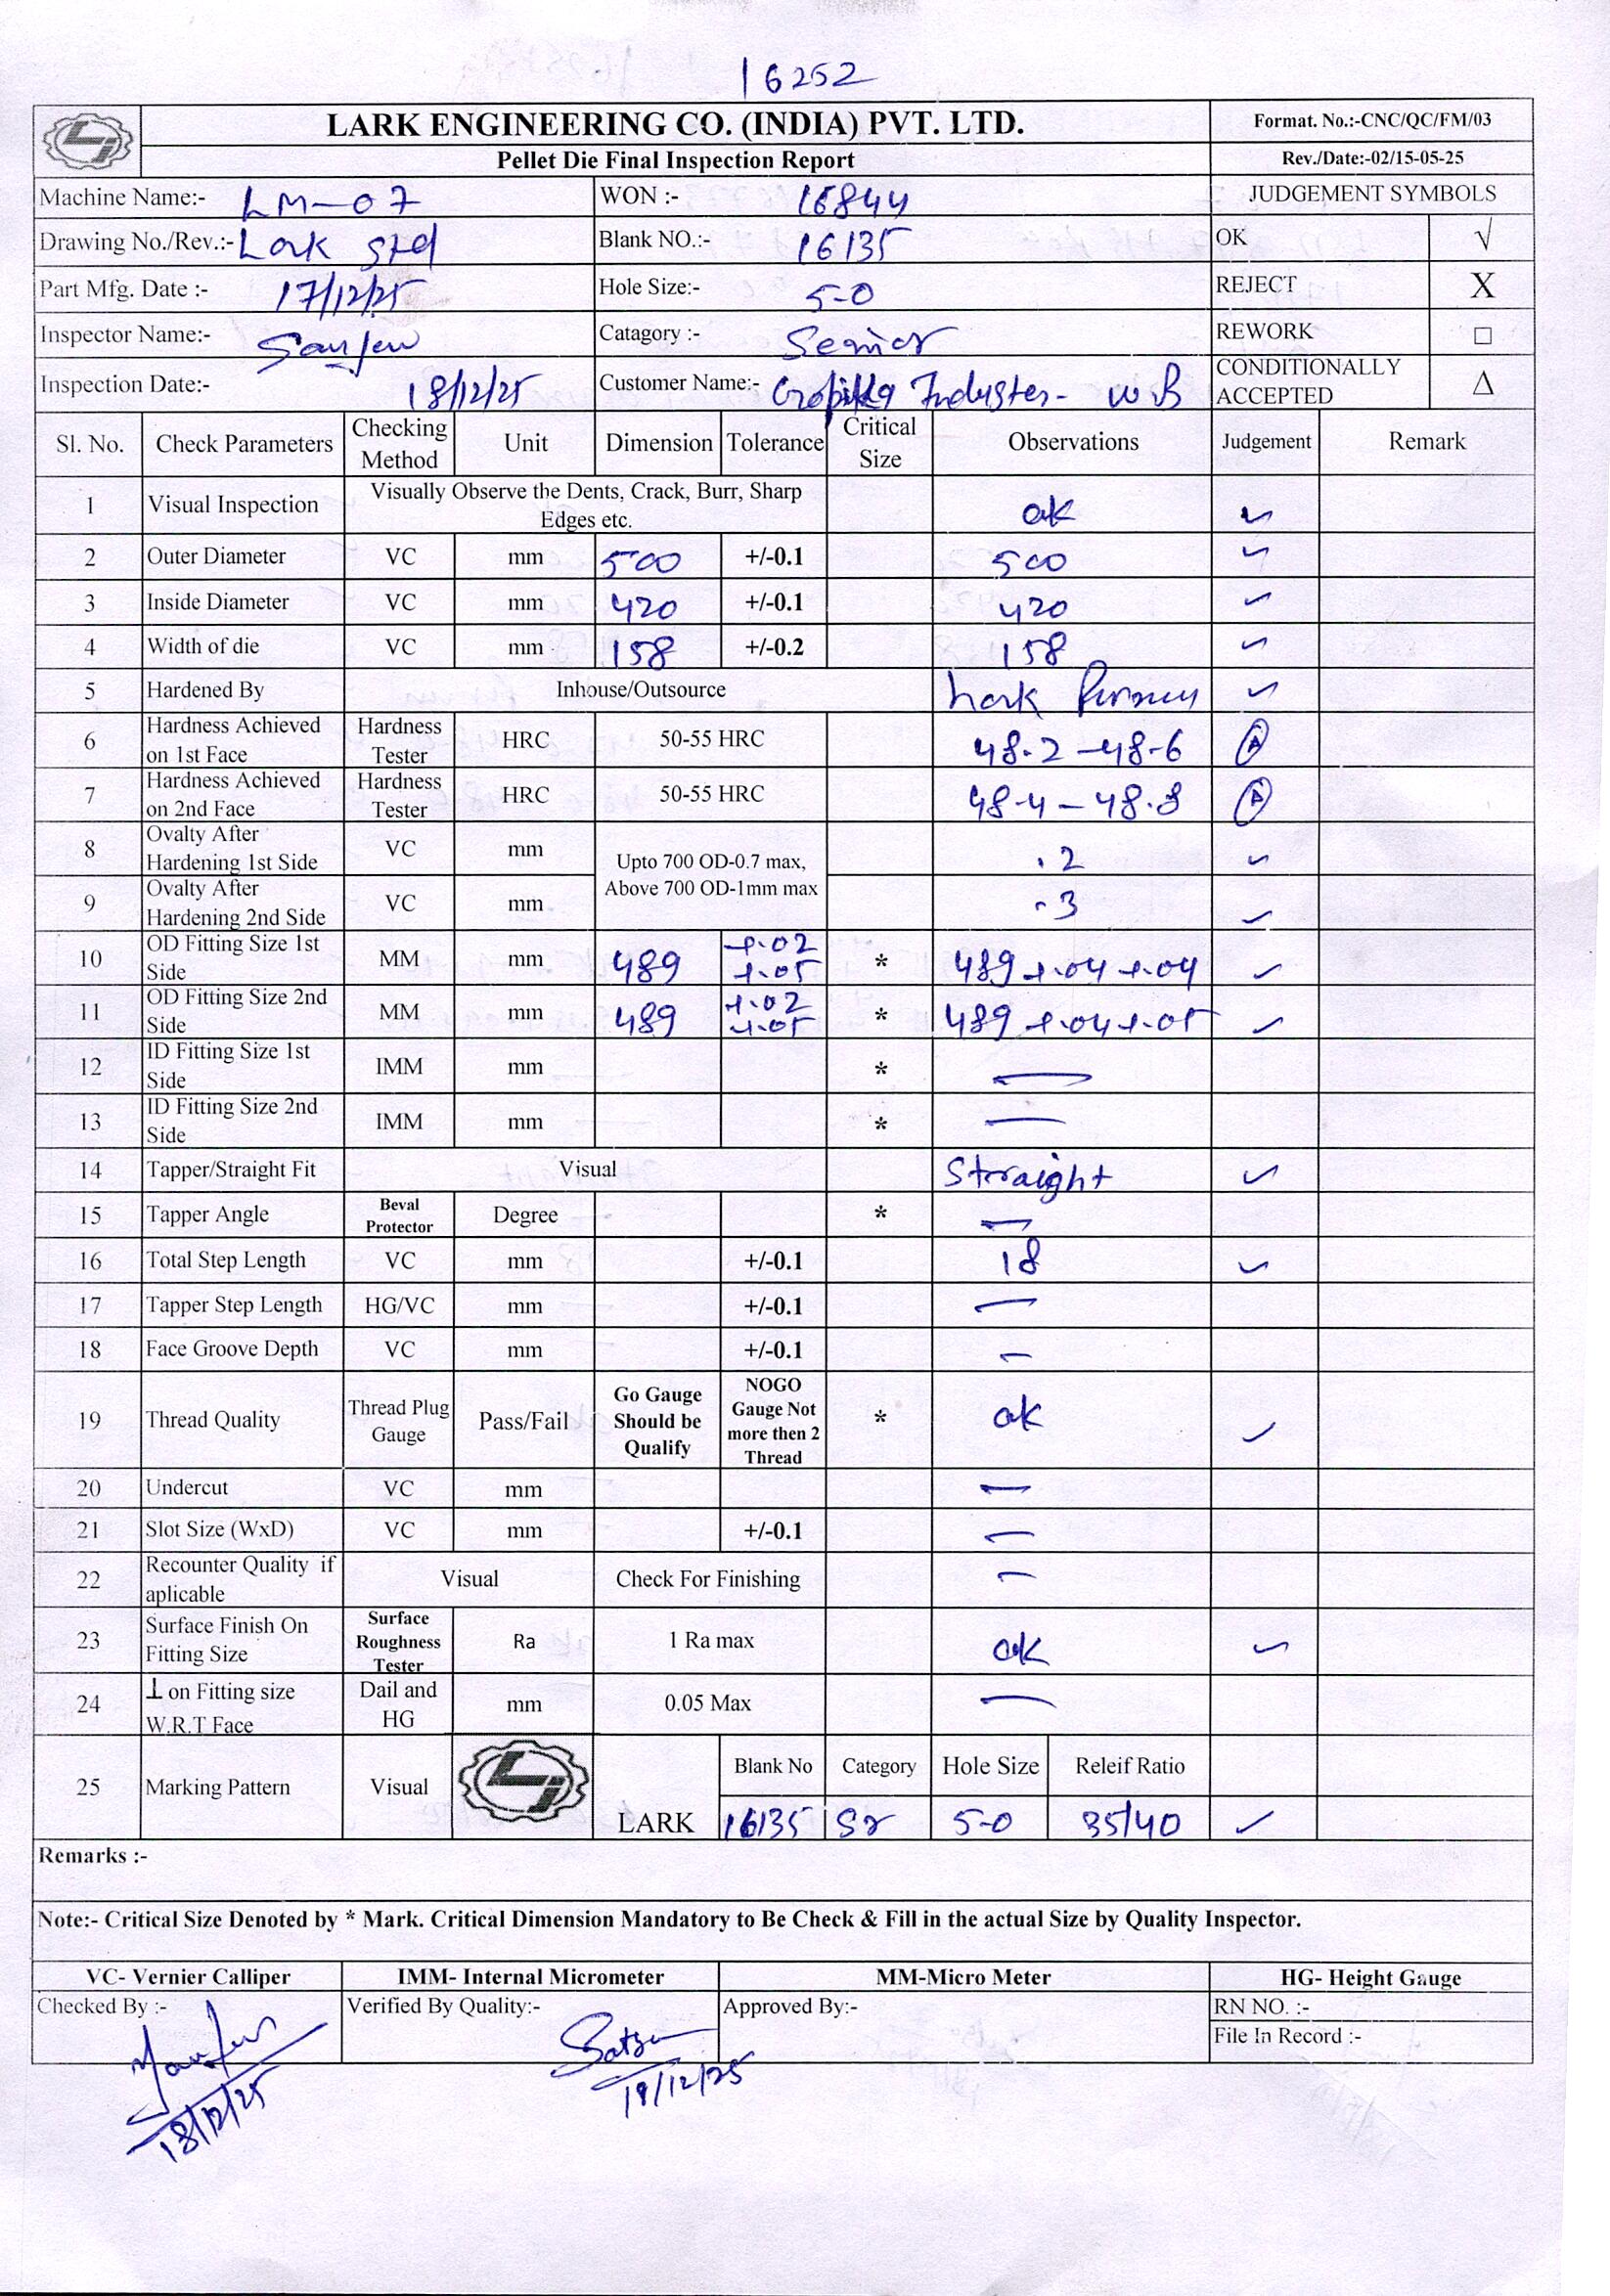 16252
LARK ENGINEERING CO. (INDIA) PVT. LTD.
Format. No.:-CNC/QC/FM/03
Pellet Die Final Inspection Report
Rev./Date:-02/15-05-25
Machine Name:- LM-07 WON :- 16844 JUDGEMENT SYMBOLS
Drawing No./Rev.:- Lark std Blank NO.:- 16135 OK √
Part Mfg. Date :- 17/12/25 Hole Size:- 5-0 REJECT X
Inspector Name:- Catagory :- Senior REWORK □
Inspection Date:- 18/12/25 Customer Name:- W B CONDITIONALLY ACCEPTED Δ
Sl. No. Check Parameters Checking Method Unit Dimension Tolerance Critical Size Observations Judgement Remark
1 Visual Inspection Visually Observe the Dents, Crack, Burr, Sharp Edges etc. ok ✓
2 Outer Diameter VC mm 500 +/-0.1 500 ✓
3 Inside Diameter VC mm 420 +/-0.1 420 ✓
4 Width of die VC mm 158 +/-0.2 158 ✓
5 Hardened By Inhouse/Outsource Lark ✓
6 Hardness Achieved on 1st Face Hardness Tester HRC 50-55 HRC 48.2-48.6
7 Hardness Achieved on 2nd Face Hardness Tester HRC 50-55 HRC 48.4-48.8
8 Ovalty After Hardening 1st Side VC mm Upto 700 OD-0.7 max, Above 700 OD-1mm max .2 ✓
9 Ovalty After Hardening 2nd Side VC mm .3 ✓
10 OD Fitting Size 1st Side MM mm 489 +.02 +.05 * 489 +.04 +.04 ✓
11 OD Fitting Size 2nd Side MM mm 489 +.02 +.05 * 489 +.04 +.05 ✓
12 ID Fitting Size 1st Side IMM mm * —
13 ID Fitting Size 2nd Side IMM mm * —
14 Tapper/Straight Fit Visual Straight ✓
15 Tapper Angle Beval Protector Degree * —
16 Total Step Length VC mm +/-0.1 18 ✓
17 Tapper Step Length HG/VC mm +/-0.1 —
18 Face Groove Depth VC mm +/-0.1 —
19 Thread Quality Thread Plug Gauge Pass/Fail Go Gauge Should be Qualify NOGO Gauge Not more then 2 Thread * ok ✓
20 Undercut VC mm —
21 Slot Size (WxD) VC mm +/-0.1 —
22 Recounter Quality if aplicable Visual Check For Finishing —
23 Surface Finish On Fitting Size Surface Roughness Tester Ra 1 Ra max ok ✓
24 ⊥ on Fitting size W.R.T Face Dail and HG mm 0.05 Max —
25 Marking Pattern Visual LARK Blank No Category Hole Size Releif Ratio
16135 Sr 5-0 35/40 ✓
Remarks :-
Note:- Critical Size Denoted by * Mark. Critical Dimension Mandatory to Be Check & Fill in the actual Size by Quality Inspector.
VC- Vernier Calliper IMM- Internal Micrometer MM-Micro Meter HG- Height Gauge
Checked By :- Verified By Quality:- Approved By:- RN NO. :-
File In Record :-
18/12/25